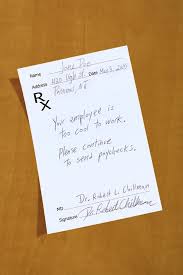 Name Jane Doe
Address High St. Date May 5, 2011
Princeton, NJ
Rx
Your employee is
too cool to work.
Please continue
to send paychecks.
Dr. Robert L. Chillman
Signature Dr. Robert Chillman